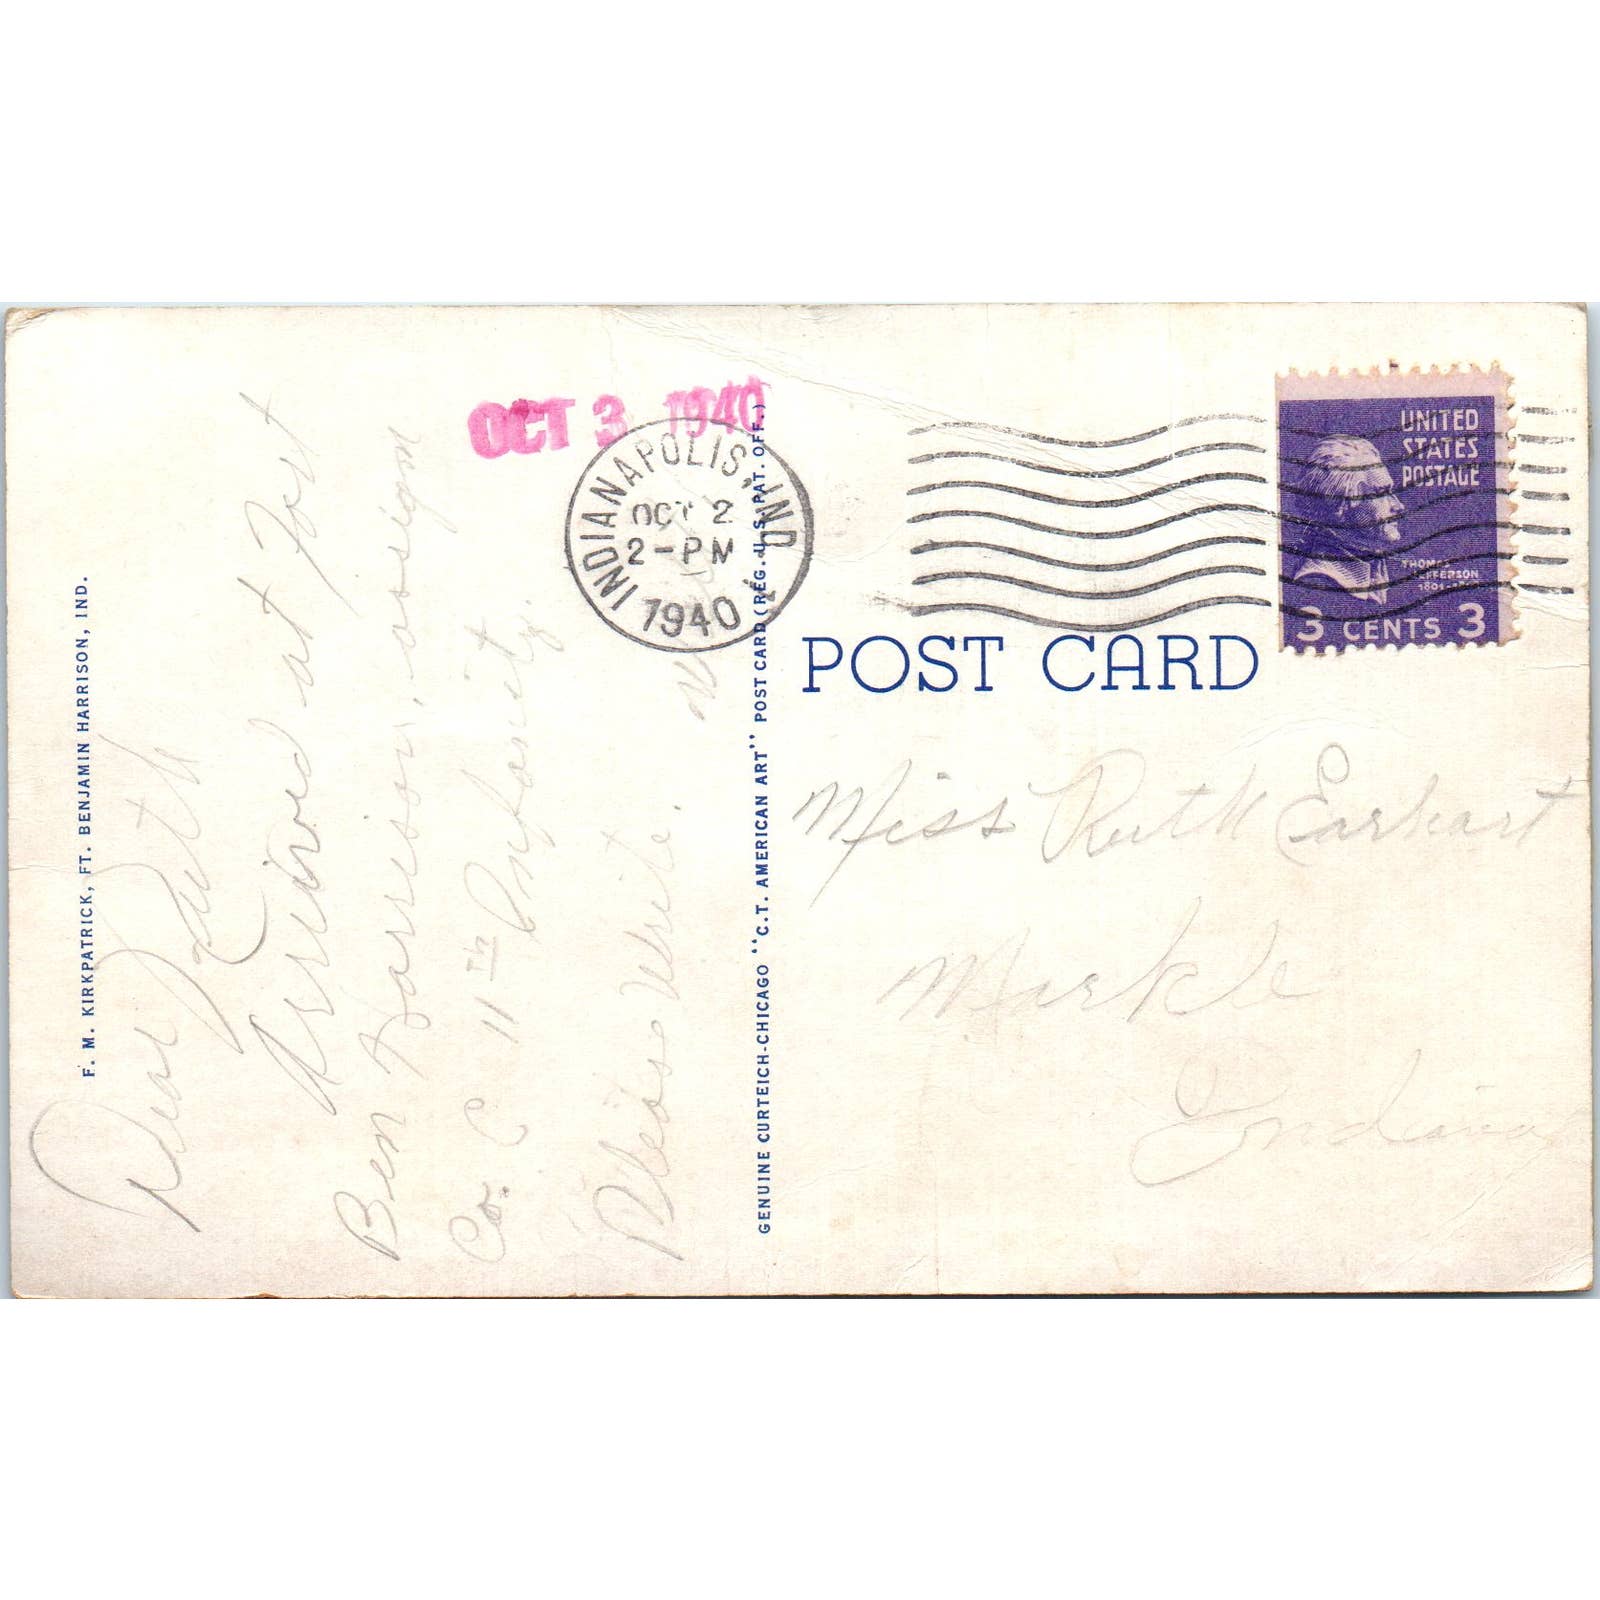 F. M. KIRKPATRICK, FT. BENJAMIN HARRISON, IND.
Dear Ruth
Arrived at Fort
Ben Harrison, assign
Co. C 11th Infantry.
Please Write.
OCT 3 1940
INDIANAPOLIS, IND.
OCT 2
2-PM
1940
GENUINE CURTEICH-CHICAGO "C.T. AMERICAN ART" POST CARD (REG. U.S. PAT. OFF.)
UNITED
STATES
POSTAGE
THOMAS
JEFFERSON
3 CENTS 3
POST CARD
Miss Ruth Earhart
Markle
Indiana